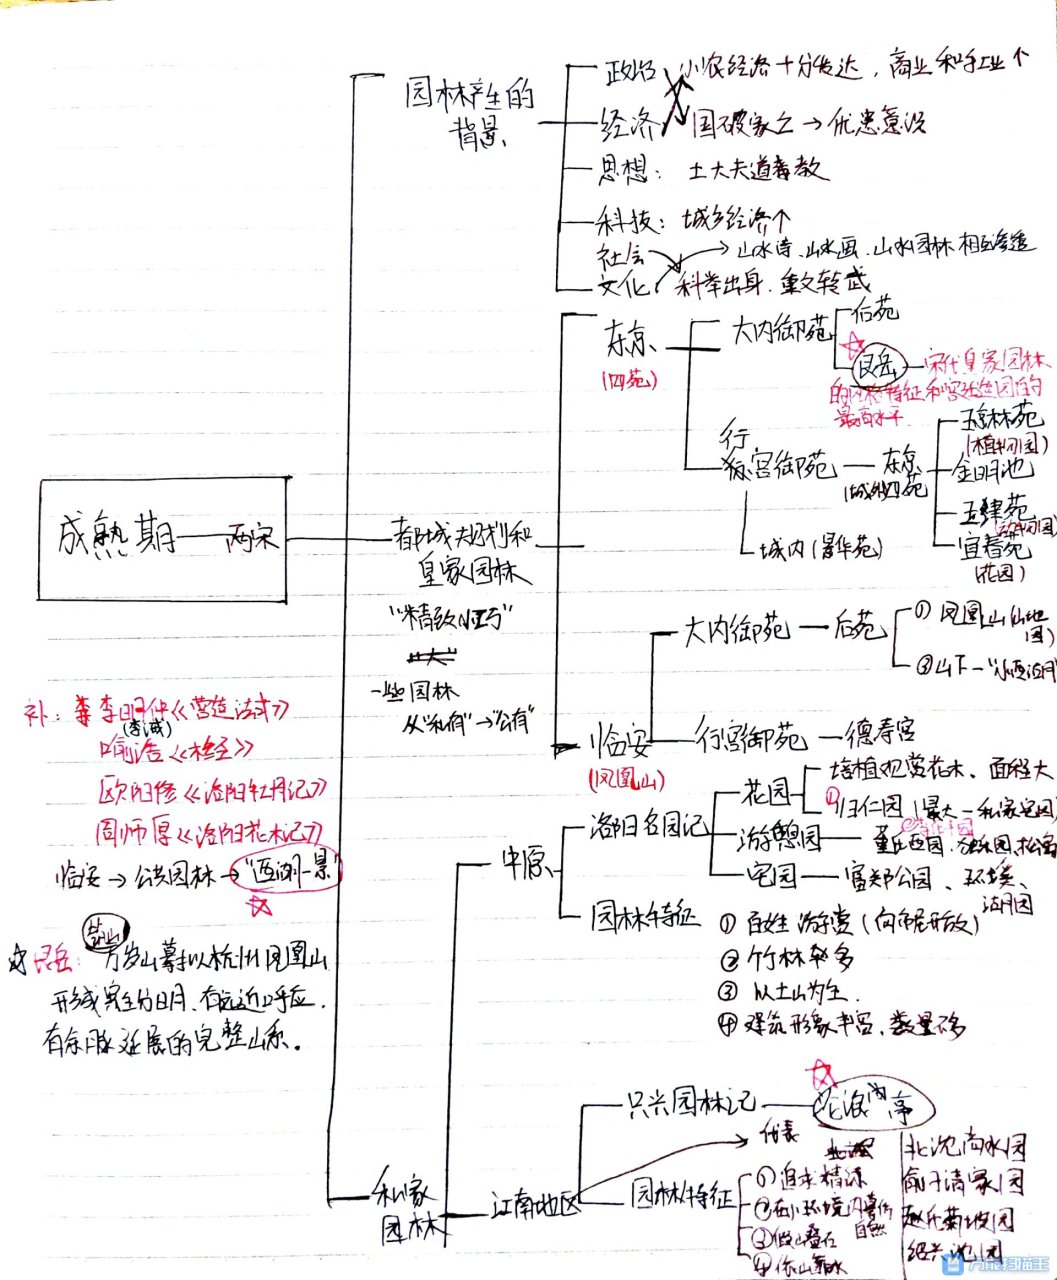 园林产生的
背景
政治
小农经济十分发达，商业和手工业个
经济
国破家亡→忧患意识
思想：士大夫道尊教
科技：城乡经济个
社会
山水诗、山水画、山水园林相互渗透
文化
科举出身、重文轻武
成熟期——两宋
都城规划和
皇家园林
"精致小巧"
一些园林
从"私有"→"公有"
东京
(四苑)
大内御苑
后苑
艮岳
宋代皇家园林
的风格特征和宫廷造园的
最高水平
行宫御苑
东京
(城外四苑
琼林苑
(植物园)
金明池
玉津苑
(动物园)
宜春苑
(花园)
城内(景华苑)
临安
(凤凰山)
大内御苑—后苑
①凤凰山(山地
园)
②山下—"小西湖"
行宫御苑—德寿宫
补：李明仲《营造法式》
(李诫)
喻浩《木经》
欧阳修《洛阳牡丹记》
周师厚《洛阳花木记》
临安→公共园林→"西湖一景
艮岳：万岁山摹拟杭州凤凰山
形成宾主分明、有远近呼应、
有余脉延展的完整山系。
私家
园林
中原
洛阳名园记
花园
培植观赏花木、面积大
①归仁园(最大一私家宅园)
游憩园
董氏西园、独乐园、松岛
宅园——富郑公园、环溪、
湖园
园林特征
①百姓游赏(向市民开放)
②竹林较多
③以土山为主.
④建筑形象丰富、数量不多
江南地区
吴兴园林记
沧浪亭
代表
北沈尚水园
俞子清家园
赵氏菊坡园
绍兴沈园
园林特征
①追求精深
②在小环境内塑仿
自然
③假山叠石
④依山靠水
万能扫描王